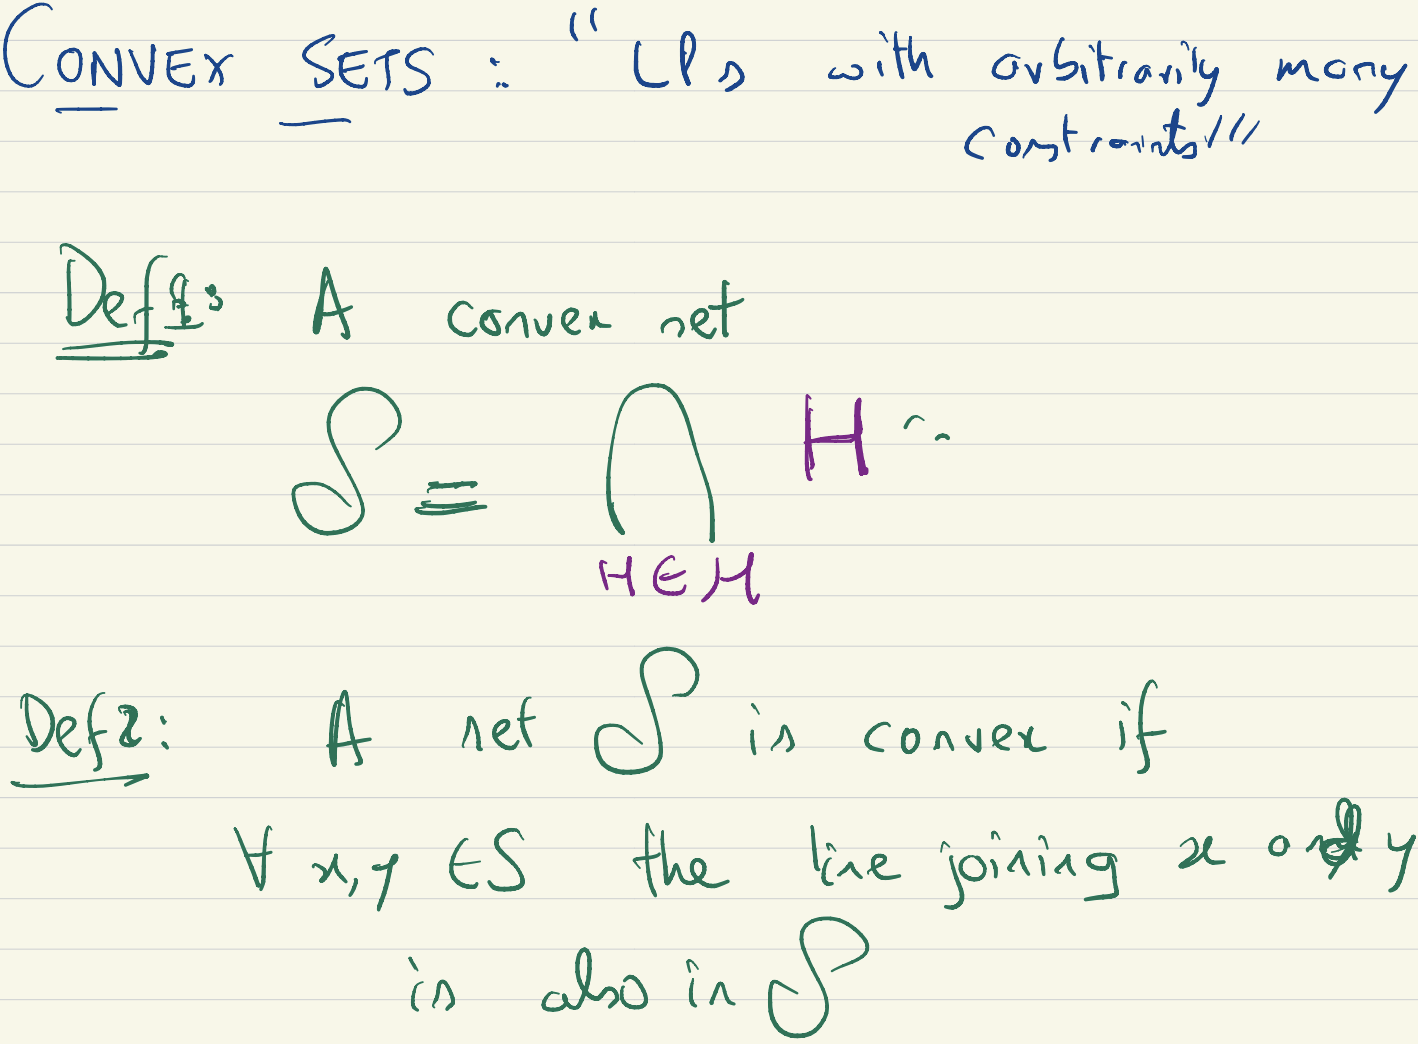 CONVEX SETS : "LPs with arbitrarily many
constraints"
Def 1: A convex set
S = ⋂ H
H ∈ H
Def 2: A set S is convex if
∀ x, y ∈ S the line joining x and y
is also in S